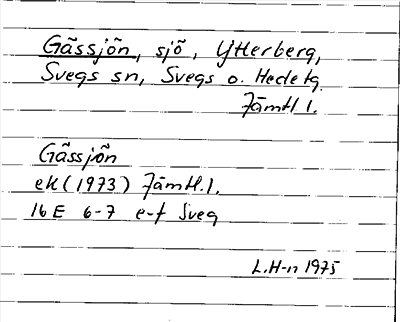 Gässjön, sjö, Ytterberg,
Svegs sn, Svegs o. Hede tg
Jämtl l.
Gässjön
ek (1973) Jämtl. l.
16 E 6-7 e-f Sveg
L.H-n 1975